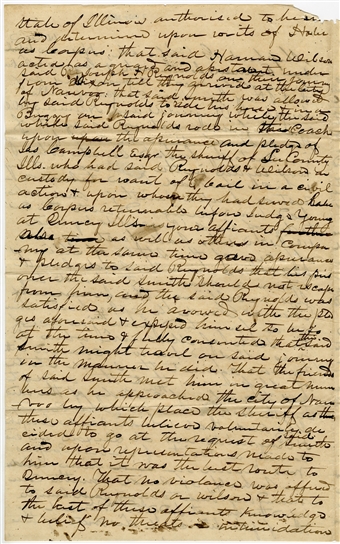 State of Illinois authorised to hear
and determine upon writs of Habe
as Corpus: that said Harman Wilson
acted as a guard and assistant under
said Joseph H Reynolds on their journey
from Dixon till they arrived at the city
of Nauvoo: that said Smith was allowed
by said Reynolds to ride his horse
on said journey while the said
said Reynolds rode in the Coach
upon the assurance and pledges of
Jas Campbell Esqr the sheriff of Lee County
Ills. who had said Reynolds & Wilson in
custody for want of bail in a civil
action & upon whom they had served Habe
as Corpus returnable before Judge Young
at Quincy Ills. your affiants
as well as others in compa
ny at the same time gave assurance
& pledges to said Reynolds that his pris
oner the said Smith should not escape
from him, and the said Reynolds was
satisfied as he avowed with the pled
ges aforesaid & expressed himself to be so
at the time & fully consented that the said
Smith might travel on said journey
in the manner he did. That the friends
of said Smith met him in great num
bers as he approached the city of Nau
voo by which place the sheriff as
these affiants believe voluntarily de
cided to go at the request of said Smith
and upon representations made to
him that it was the best route to
Quincy. That no violence was offered
to said Reynolds or Wilson & that to
the best of these affiants knowledge
& belief no threats or intimidation